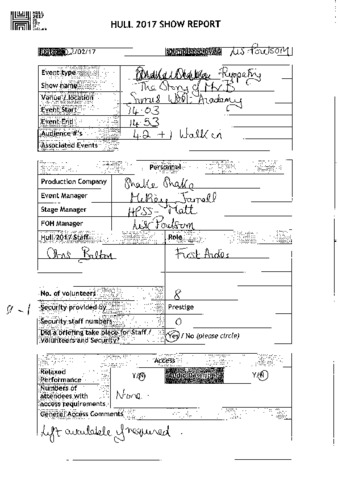 HULL 2017 SHOW REPORT
2/02/17 Lis Paulson
Event type Puppetry
Show name The Story of Mr B
Venue / location Sirius West Academy
Event Start 14.03
Event End 14.53
Audience #'s 42 + 1 Walk in
Associated Events
Personnel
Production Company Shake Shake
Event Manager
Stage Manager HPSS - Matt
FOH Manager Lis Paulson
Hull 2017 Staff Role
Chris First Aider
No. of volunteers 8
Security provided by Prestige
Security staff numbers 0
Did a briefing take place for Staff / Yes / No (please circle)
Volunteers and Security?
Access
Relaxed
Performance Y/N Y/N
Numbers of
attendees with None.
access requirements
General Access Comments
Lift available if required.